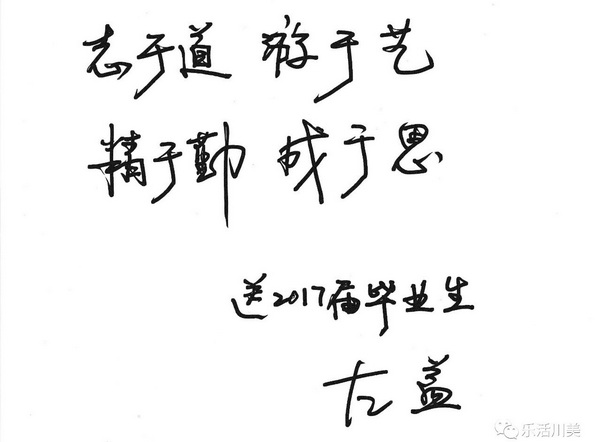 志于道 游于艺
精于勤 成于思
送2017届毕业生
左益
乐活川美